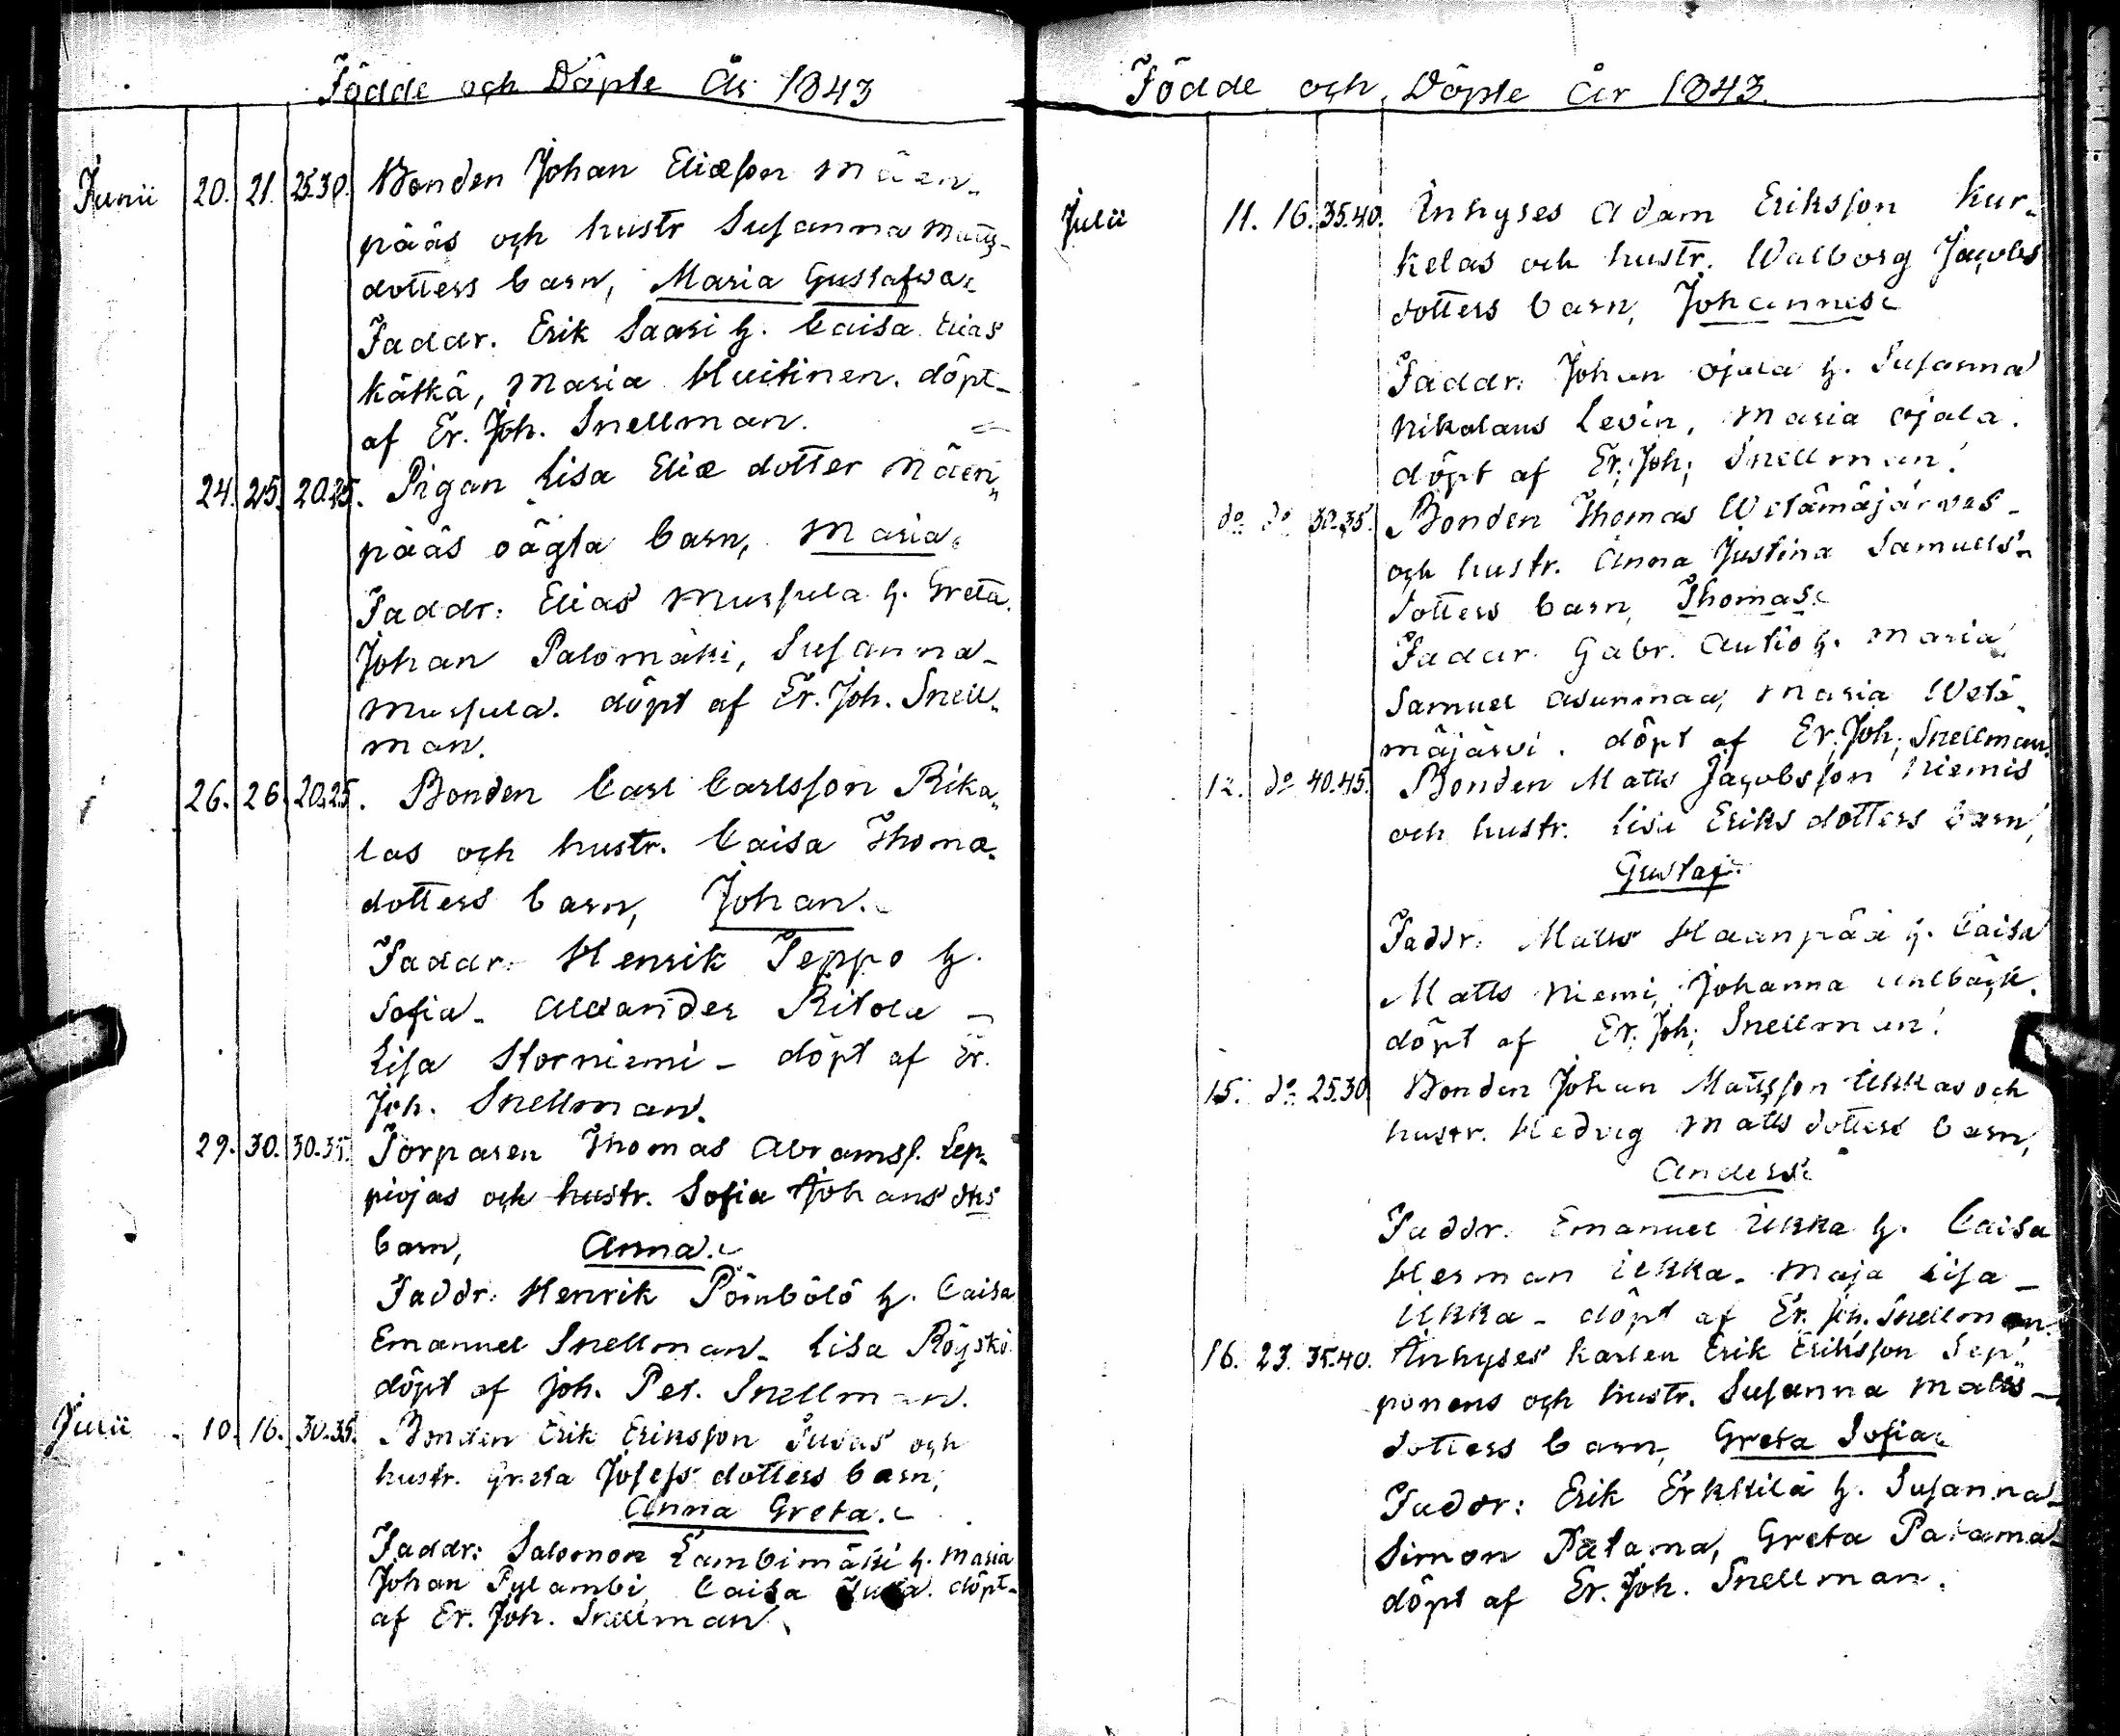 Födde och Döpte År 1843
Junii 20. 21. 25.30. Bonden Johan Eliæson Mäen-
pääs och hustr Susanna Matts-
dotters barn, Maria Gustafva.
Faddr. Erik Saari h. Caisa Elias
Kätkä, Maria Huitinen. döpt
af Er. Joh. Snellman.
24. 25. 20.25. Pigan Lisa Eliæ dotter Mäen-
pääs oägta barn, Maria.
Faddr: Elias Mursula h. Greta.
Johan Palomäki, Susanna
Mursula. döpt af Er. Joh. Snell-
man.
26. 26. 20.25. Bonden Carl Carlsson Rika-
las och hustr. Caisa Thomæ
dotters barn, Johan.
Faddr: Henrik Teppo h.
Sofia - Alexander Ritola -
Lisa Storniemi - döpt af Er.
Joh. Snellman.
29. 30. 30.35. Torparen Thomas Abramss. Lep-
piojas och hustr. Sofia Johans dtrs
barn, Anna.
Faddr: Henrik Pömbölö h. Caisa
Emanuel Snellman - Lisa Röyskö
döpt af Joh. Pet. Snellman.
Julii 10. 16. 30.35. Bonden Erik Eriksson Judas och
hustr. Greta Josefs dotters barn,
Anna Greta.
Faddr: Salomon Lambimäki h. Maria
Johan Pylambi, Caisa döpt
af Er. Joh. Snellman.
Födde och Döpte År 1843.
Julii 11. 16. 35.40. Inhyses Adam Eriksson Kur-
kelas och hustr. Walborg Jacobs
dotters barn, Johannes.
Faddr: Johan Ojala h. Susanna
Nikolaus Levin, Maria Ojala.
döpt af Er. Joh. Snellman.
do do 30.35. Bonden Thomas Wetämäjärves
och hustr. Anna Justina Samuels-
dotters barn, Thomas.
Faddr. Gabr. Autio h. Maria
Samuel Asunmaa, Maria Wetä-
mäjärvi. döpt af Er. Joh. Snellman.
12. do 40.45. Bonden Matts Jacobsson Niemis
och hustr. Lisa Eriks dotters barn,
Gustaf.
Faddr: Matts Haanpää h. Caisa
Matts Niemi, Johanna Ahlbäck.
döpt af Er. Joh. Snellman.
15. do 25.30. Bonden Johan Mattsson Ikkas och
hustr. Hedvig Matts dotters barn,
Anders.
Faddr. Emanuel Ikka h. Caisa
Herman Ikka - Maja Lisa -
Ikka - döpt af Er. Joh. Snellman.
16. 23. 35.40. Inhyses karlen Erik Eriksson Sep-
ponens och hustr. Susanna Matts
dotters barn, Greta Sofia.
Faddr: Erik Erkkilä h. Susanna
Simon Patama, Greta Patama
döpt af Er. Joh. Snellman.